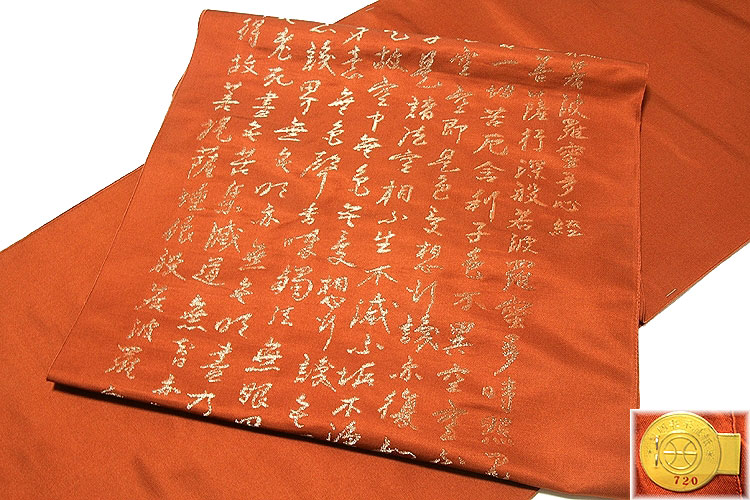 若波羅蜜多心經
菩薩行深般若波羅蜜多時照見
一切苦厄舍利子色不異空空不
空空即是色受想行識亦復如
子是諸法空相不生不滅不垢不淨
是故空中無色無受想行識無
身意無色聲香味觸法無眼界
意識界無無明亦無無明盡乃
老死盡無苦集滅道無智亦
得故菩提薩埵依般若波羅
720